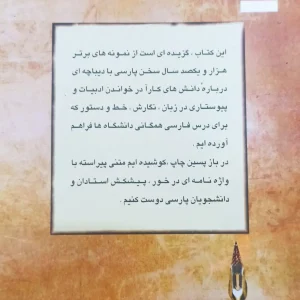 این کتاب ، گزیده ای است از نمونه های برتر
هزار و یکصد سال سخن پارسی با دیباچه ای
درباره دانش های کارا در خواندن ادبیات و
پیوستاری در زبان ، نگارش ، خط و دستور که
برای درس فارسی همگانی دانشگاه ها فراهم
آورده ایم .
در باز پسین چاپ ،کوشیده ایم متنی پیراسته با
واژه نامه ای در خور ، پیشکش استادان و
دانشجویان پارسی دوست کنیم .